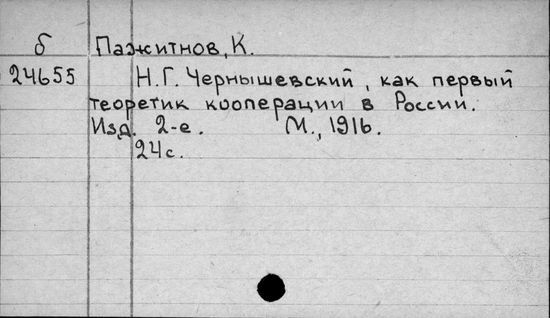 б Пажитнов, К.
24655 Н.Г. Чернышевский, как первый
теоретик кооперации в России.
Изд. 2-е. М., 1916.
24с.